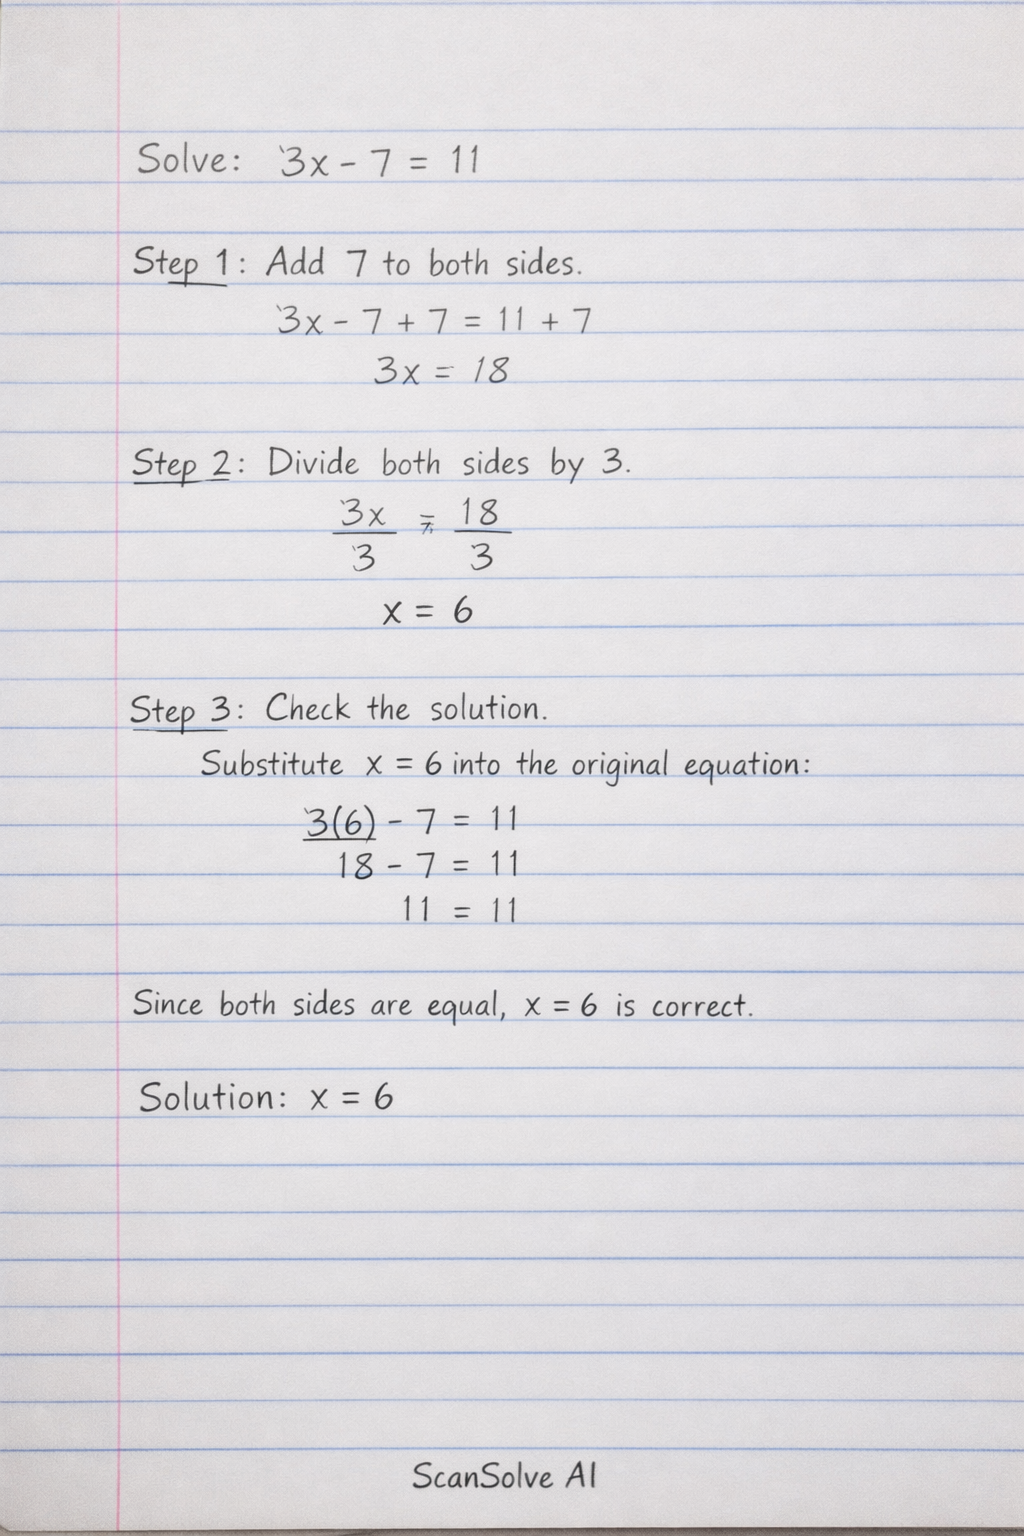 Solve: 3x - 7 = 11
Step 1: Add 7 to both sides.
3x - 7 + 7 = 11 + 7
3x = 18
Step 2: Divide both sides by 3.
3x/3 = 18/3
x = 6
Step 3: Check the solution.
Substitute x = 6 into the original equation:
3(6) - 7 = 11
18 - 7 = 11
11 = 11
Since both sides are equal, x = 6 is correct.
Solution: x = 6
ScanSolve AI